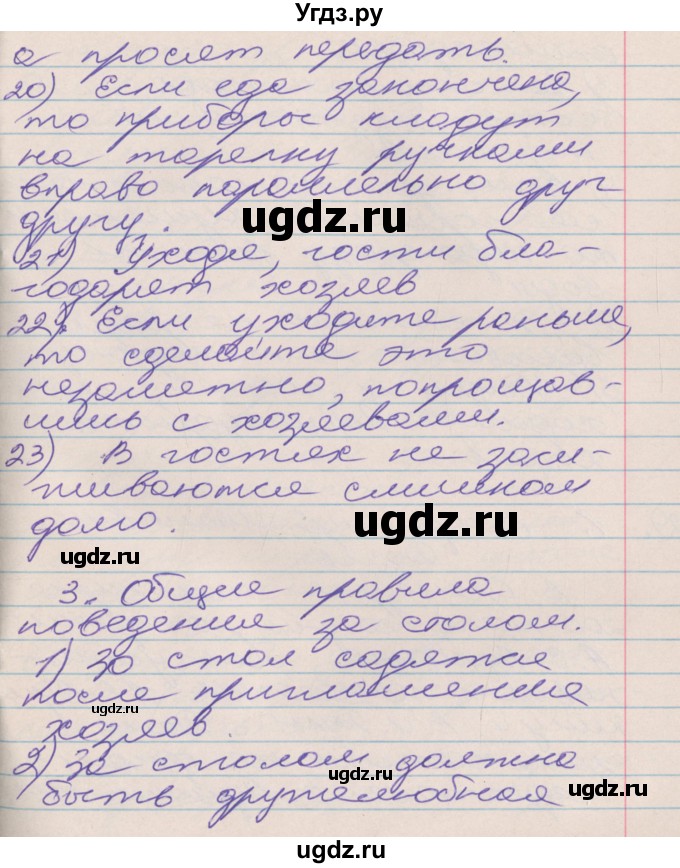 Угдз.ру
а просят передать.
20) Если еда закончена,
то приборы кладут
на тарелку ручками
вправо параллельно друг
другу.
ugdz.ru
21) Уходя, гости бла-
годарят хозяев
22) Если уходите раньше,
то сделайте это
незаметно, попрощав-
шись с хозяевами.
23) В гостях не заси-
живаются слишком
долго.
ugdz.ru
ugdz.ru
3. Общие правила
поведения за столом.
1) За стол садятся
после приглашения
хозяев
ugdz.ru
2) За столом должна
ugdz.ru
быть дружелюбная
ugdz.ru